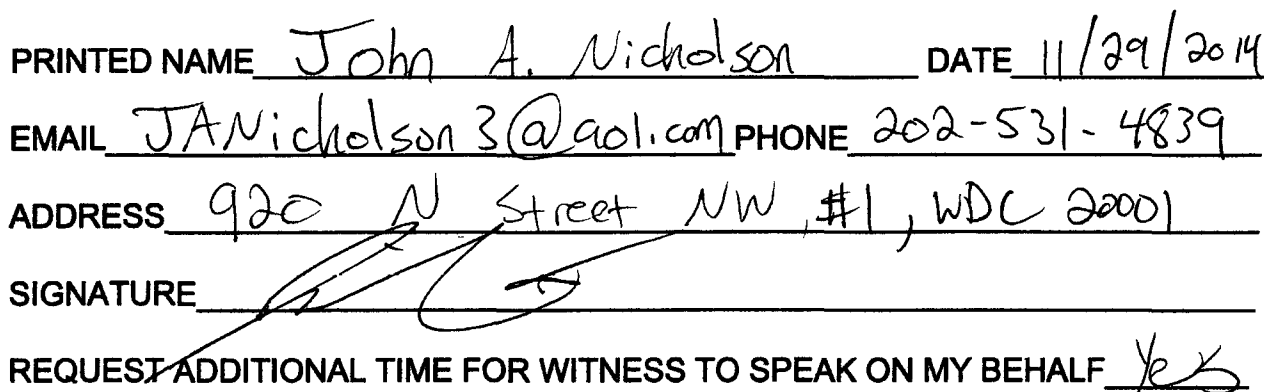 PRINTED NAME John A. Nicholson DATE 11/29/2014
EMAIL JANicholson3@aol.com PHONE 202-531-4839
ADDRESS 920 N Street NW, #1, WDC 20001
SIGNATURE
REQUEST ADDITIONAL TIME FOR WITNESS TO SPEAK ON MY BEHALF Yes